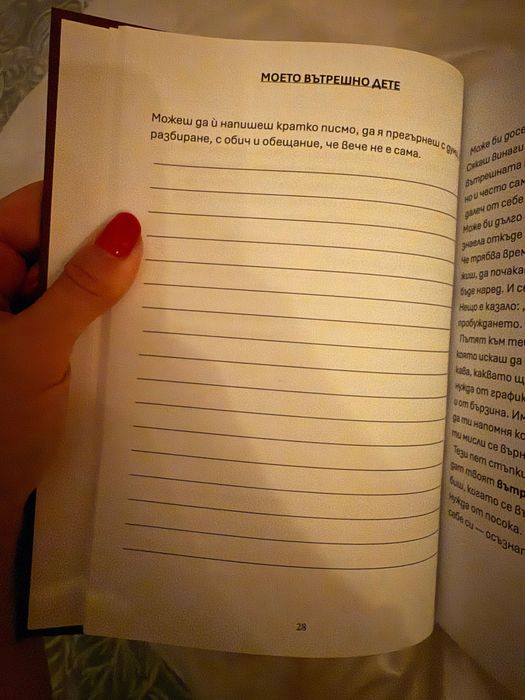 МОЕТО ВЪТРЕШНО ДЕТЕ
Можеш да ѝ напишеш кратко писмо, да я прегърнеш с
разбиране, с обич и обещание, че вече не е сама.
28
Може би
Сякаш винаги
вътрешната
но и често
далеч от себе
Може би дълго
знаела откъде
Че трябва
да почака
бъде наред. И
Нещо е казало:
пробуждането.
Пътят към
която искаш да
каквато
нужда от
и от бързина.
да ти напомня
ти мисли се
Тези пет
твоят
когато се
нужда от посока.
себе си —